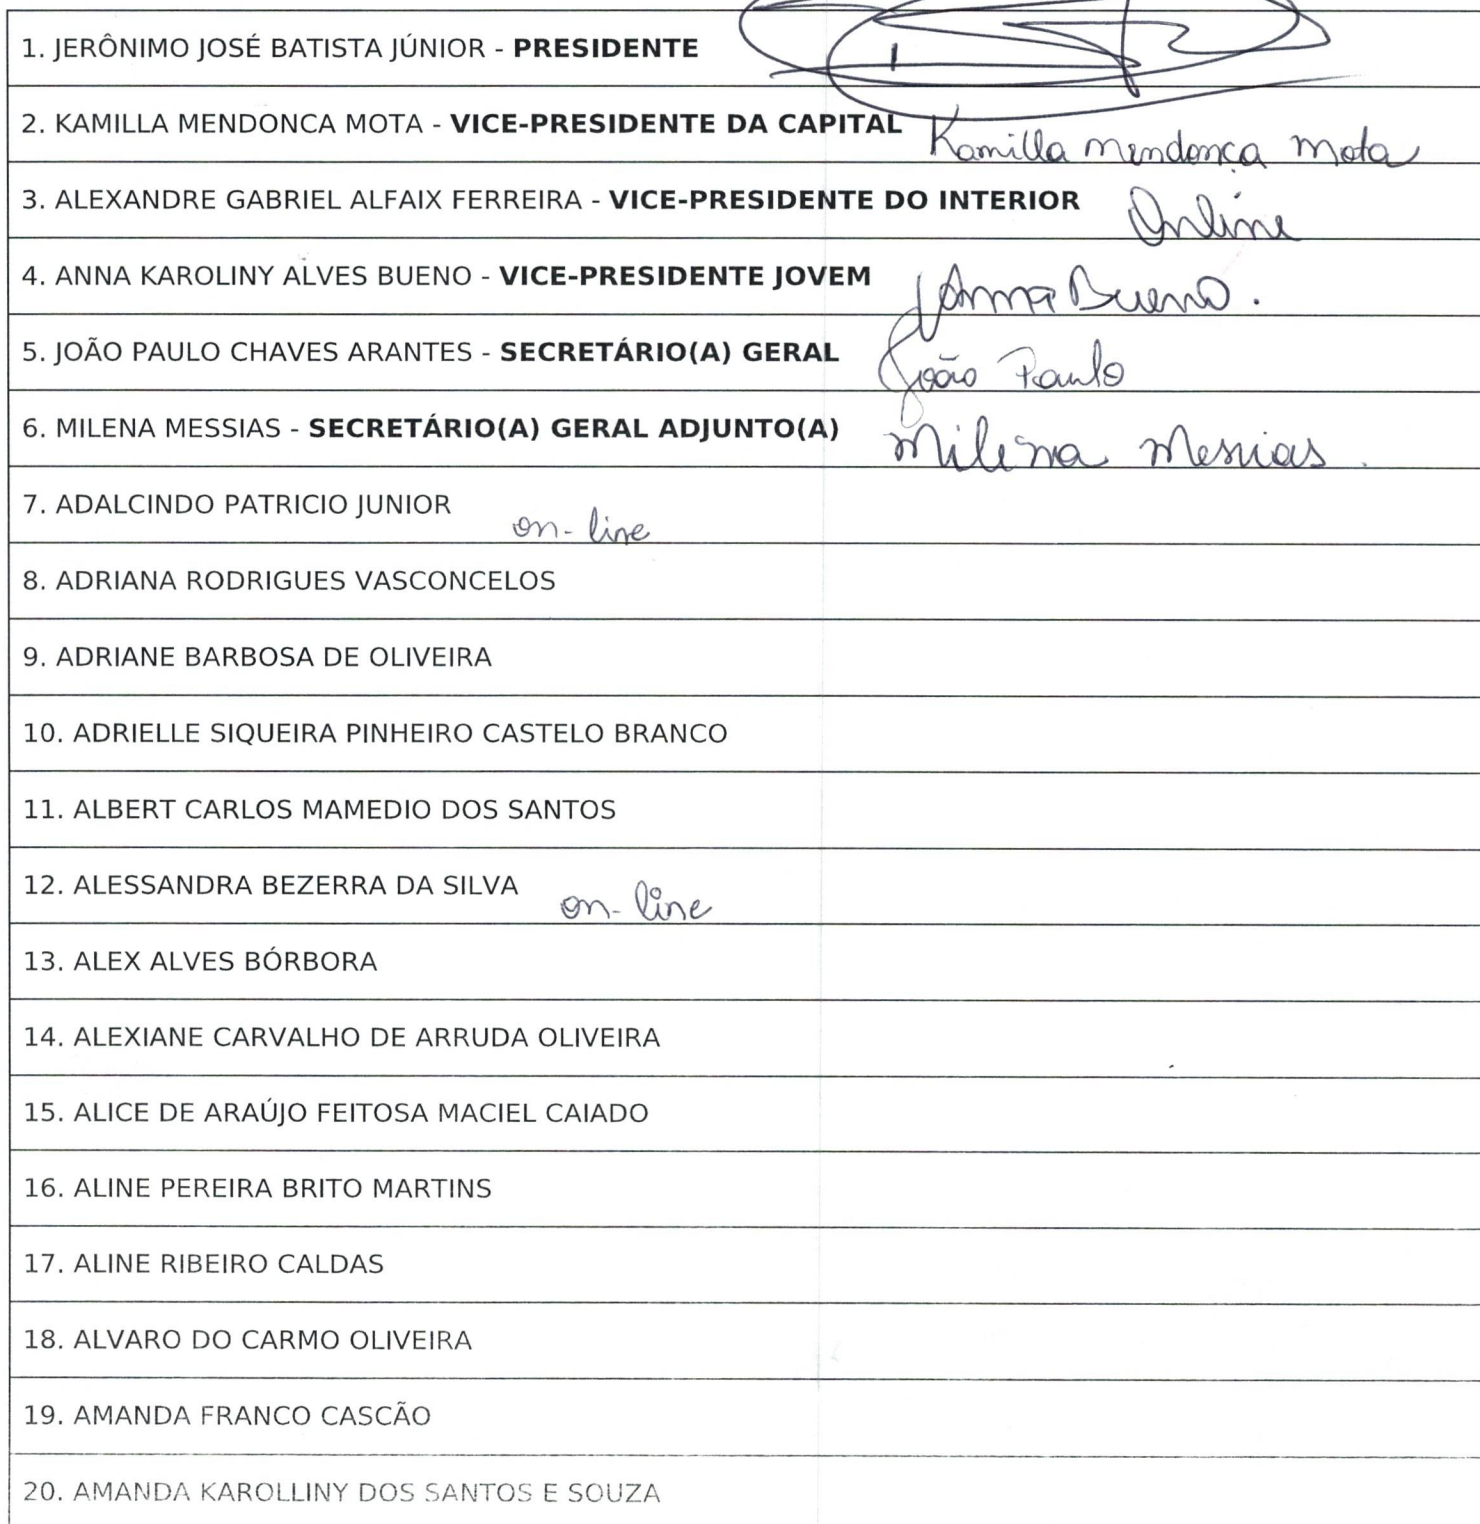 1. JERÔNIMO JOSÉ BATISTA JÚNIOR - PRESIDENTE
2. KAMILLA MENDONCA MOTA - VICE-PRESIDENTE DA CAPITAL Kamilla Mendonça Mota
3. ALEXANDRE GABRIEL ALFAIX FERREIRA - VICE-PRESIDENTE DO INTERIOR Online
4. ANNA KAROLINY ALVES BUENO - VICE-PRESIDENTE JOVEM Anna Bueno.
5. JOÃO PAULO CHAVES ARANTES - SECRETÁRIO(A) GERAL João Paulo
6. MILENA MESSIAS - SECRETÁRIO(A) GERAL ADJUNTO(A) Milena Messias.
7. ADALCINDO PATRICIO JUNIOR on-line
8. ADRIANA RODRIGUES VASCONCELOS
9. ADRIANE BARBOSA DE OLIVEIRA
10. ADRIELLE SIQUEIRA PINHEIRO CASTELO BRANCO
11. ALBERT CARLOS MAMEDIO DOS SANTOS
12. ALESSANDRA BEZERRA DA SILVA on-line
13. ALEX ALVES BÓRBORA
14. ALEXIANE CARVALHO DE ARRUDA OLIVEIRA
15. ALICE DE ARAÚJO FEITOSA MACIEL CAIADO
16. ALINE PEREIRA BRITO MARTINS
17. ALINE RIBEIRO CALDAS
18. ALVARO DO CARMO OLIVEIRA
19. AMANDA FRANCO CASCÃO
20. AMANDA KAROLLINY DOS SANTOS E SOUZA